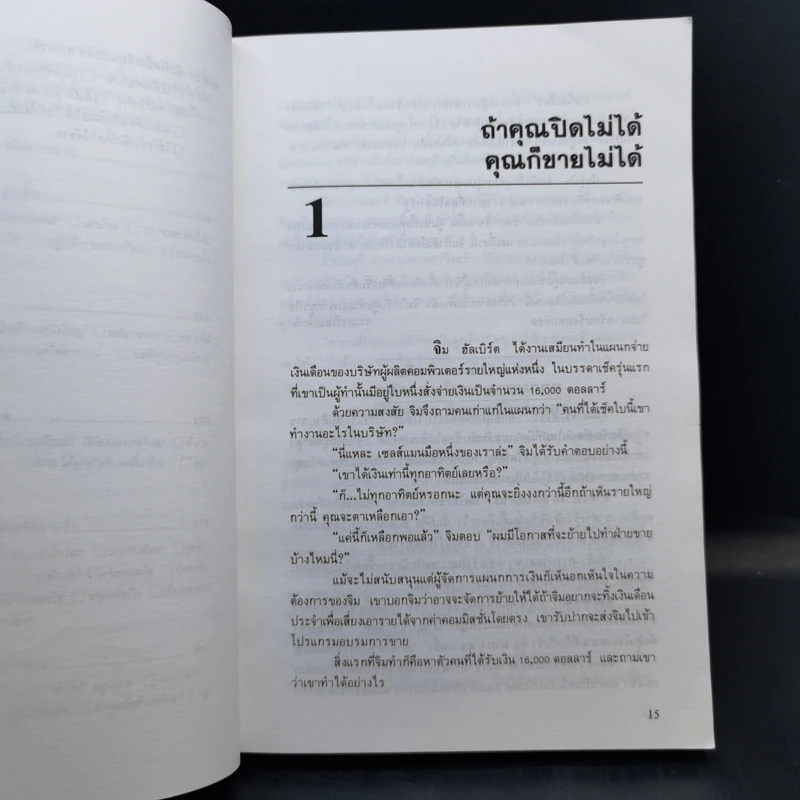 ถ้าคุณปิดไม่ได้
คุณก็ขายไม่ได้
1
จิม ฮัลเบิร์ต ได้งานเสมียนทำในแผนกจ่าย
เงินเดือนของบริษัทผู้ผลิตคอมพิวเตอร์รายใหญ่แห่งหนึ่ง ในบรรดาเช็ครุ่นแรก
ที่เขาเป็นผู้ทำนั้นมีอยู่ใบหนึ่งสั่งจ่ายเงินเป็นจำนวน 16,000 ดอลลาร์
ด้วยความสงสัย จิมจึงถามคนเก่าแก่ในแผนกว่า “คนที่ได้เช็คใบนี้เขา
ทำงานอะไรในบริษัท?”
“นี่แหละ เซลส์แมนมือหนึ่งของเราล่ะ” จิมได้รับคำตอบอย่างนี้
“เขาได้เงินเท่านี้ทุกอาทิตย์เลยหรือ?”
“ก็...ไม่ทุกอาทิตย์หรอกนะ แต่คุณจะยิ่งงงกว่านี้อีกถ้าเห็นรายใหญ่
กว่านี้ คุณจะตาเหลือกเอา?”
“แค่นี้ก็เหลือกพอแล้ว” จิมตอบ “ผมมีโอกาสที่จะย้ายไปทำฝ่ายขาย
บ้างไหมนี่?”
แม้จะไม่สนับสนุนแต่ผู้จัดการแผนกการเงินก็เห็นอกเห็นใจในความ
ต้องการของจิม เขาบอกจิมว่าอาจจะจัดการย้ายให้ได้ถ้าจิมอยากจะทิ้งเงินเดือน
ประจำเพื่อเสี่ยงเอารายได้จากค่าคอมมิสชั่นโดยตรง เขารับปากจะส่งจิมไปเข้า
โปรแกรมอบรมการขาย
สิ่งแรกที่จิมทำก็คือหาตัวคนที่ได้รับเงิน 16,000 ดอลลาร์ และถามเขา
ว่าเขาทำได้อย่างไร
15